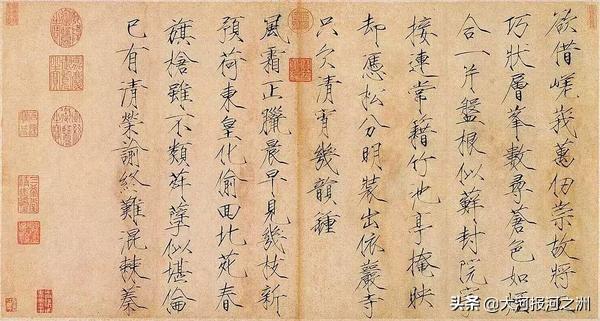 欲借嵯峨萬仞崇故將工
巧狀層峯數尋蒼色如煙
合一片盤根似蘚封院宇
接連常藉竹池亭掩映
却憑松分明裝出依巖寺
只欠清宵幾韻鍾
風霜正臘晨早見幾枝新
預荷東皇化偷回北苑春
旗槍雖不類荈蘖似堪倫
已有清榮諭終難混棘蓁
头条 @大河报河之洲